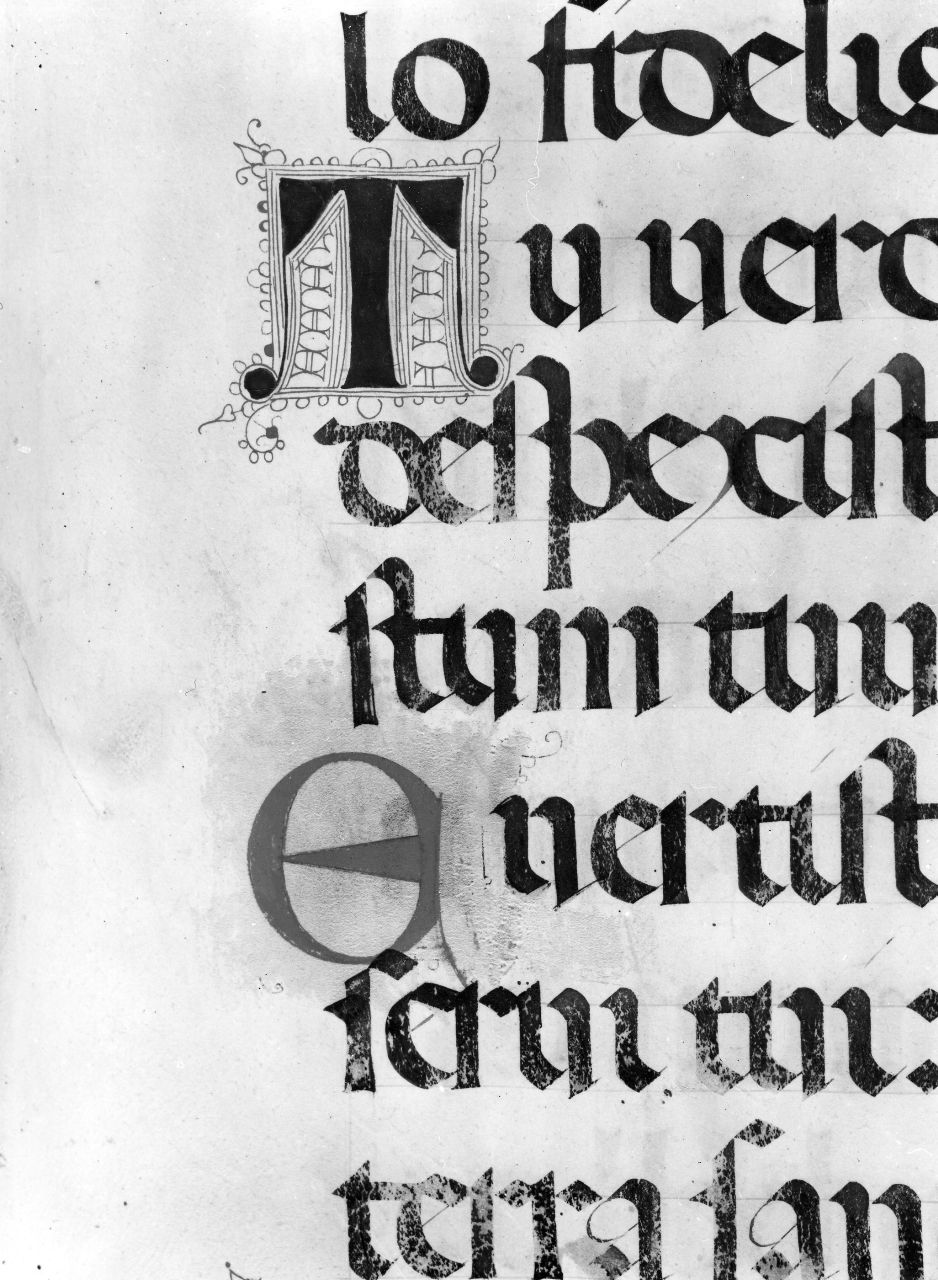 lo fidelis
Tu uero
despexist
stum tuu
Euertist
serui tui:
terra san